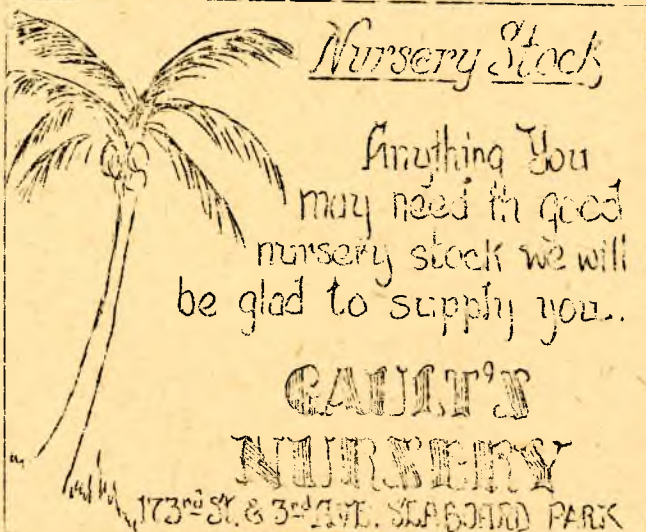 Nursery Stock
Anything You
may need in good
nursery stock we will
be glad to supply you..
GAULT'S
NURSERY
173rd St. & 3rd AVE. SEABOARD PARK